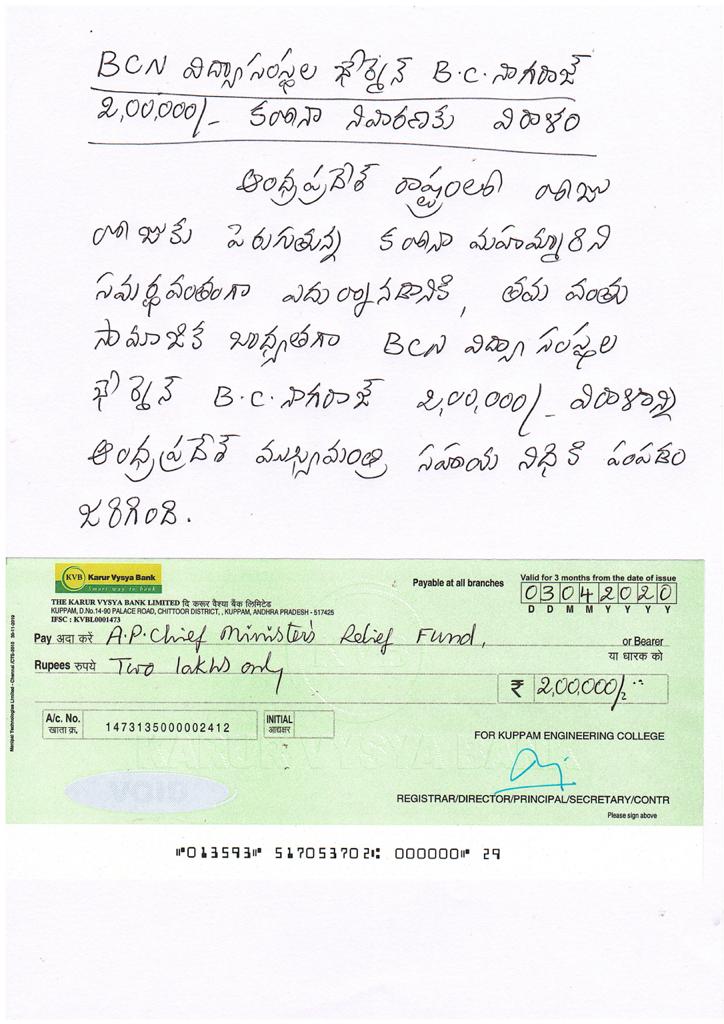 BCN విద్యాసంస్థల ఛైర్మెన్ B.C.నాగరాజ్
2,00,000/- కరోనా నివారణకు విరాళం
ఆంధ్రప్రదేశ్ రాష్ట్రంలో రోజు
రోజుకు పెరుగుతున్న కరోనా మహమ్మారిని
సమర్థవంతంగా ఎదుర్కొనడానికి, తమ వంతు
సామాజిక బాధ్యతగా BCN విద్యా సంస్థల
ఛైర్మెన్ B.C.నాగరాజ్ 2,00,000/- విరాళాన్ని
ఆంధ్రప్రదేశ్ ముఖ్యమంత్రి సహాయ నిధికి పంపడం
జరిగింది.
KVB Karur Vysya Bank
Smart way to bank
Payable at all branches
Valid for 3 months from the date of issue
03042020
D D M M Y Y Y Y
THE KARUR VYSYA BANK LIMITED दि करूर वैश्या बैंक लिमिटेड
KUPPAM, D.No.14-90 PALACE ROAD, CHITTOOR DISTRICT, , KUPPAM, ANDHRA PRADESH - 517425
IFSC : KVBL0001473
Pay अदा करें A.P. Chief Minister's Relief Fund, or Bearer
या धारक को
Rupees रुपये Two lakhs only
₹ 2,00,000/-
A/c. No.
खाता क्र.
1473135000002412
INITIAL
आद्यक्षर
FOR KUPPAM ENGINEERING COLLEGE
KARUR VYSYA BANK
VOID
REGISTRAR/DIRECTOR/PRINCIPAL/SECRETARY/CONTR
Please sign above
⑈013593⑈ 517053702⑆ 000000⑈ 29